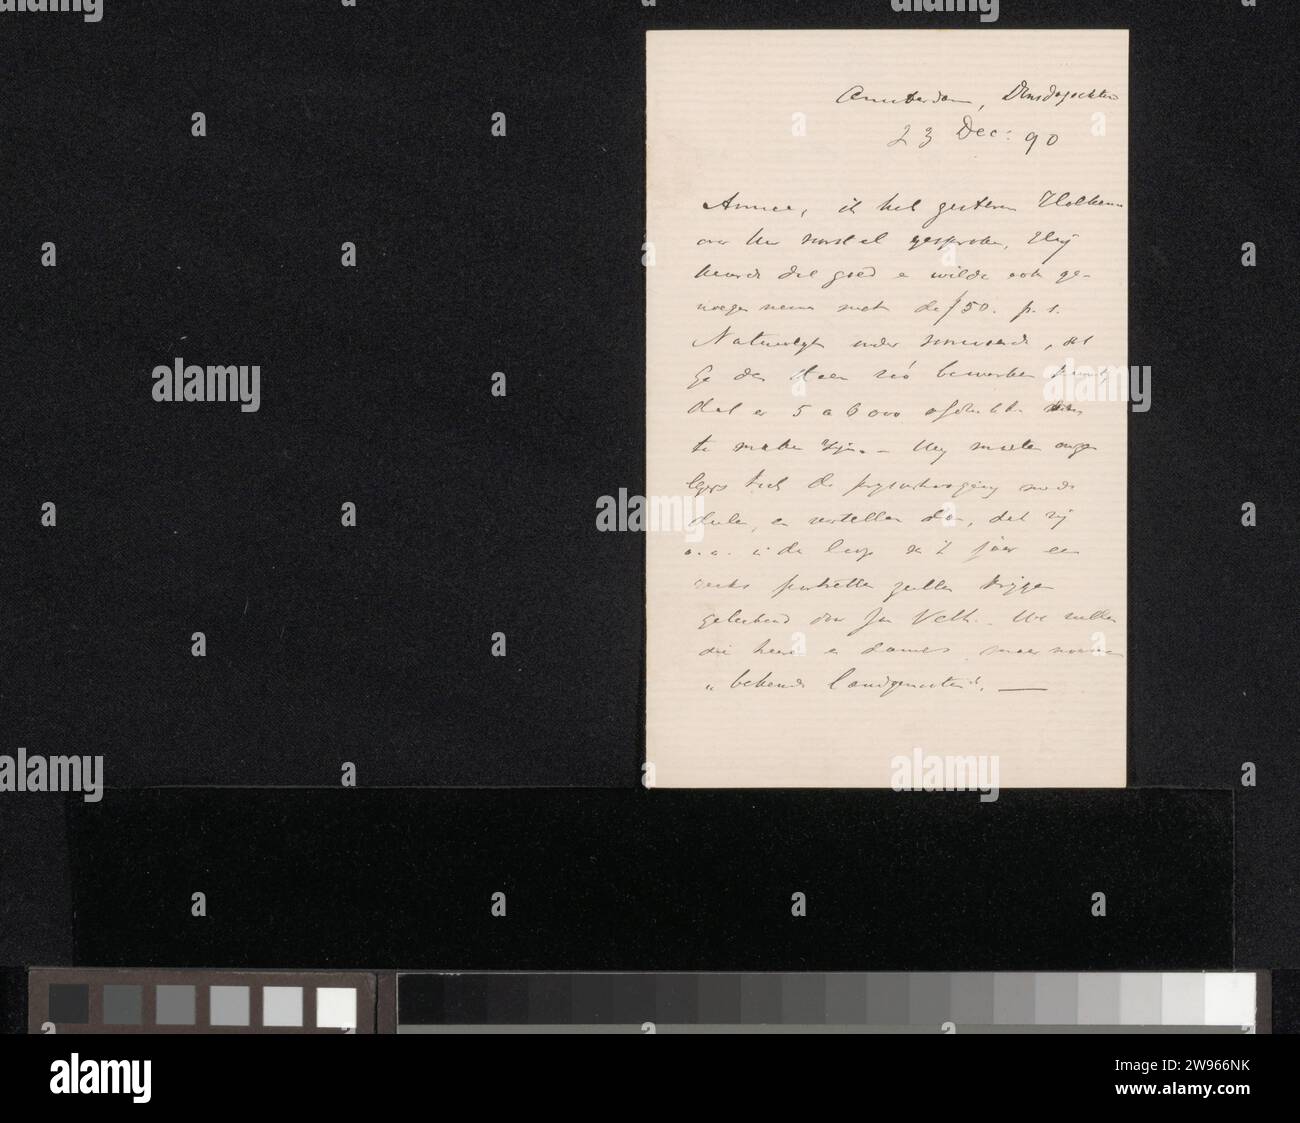 Amsterdam, Dinsdagochten
23 Dec: 90
Amice, ik heb gisteren Holkema
over Uw voorstel gesproken. Hij
keurde dat goed en wilde ook ge-
noegen nemen met de f 50. p. s.
Natuurlijk onder voorwaarde, dat
ge den steen zoo bewerken kunt,
dat er 5 a 6000 afdrukken van
te maken zijn. - Wij moeten onze
lezers toch de prijsverhooging mede
deelen, en vertellen dan, dat zij
o.a. in den loop van 't jaar een
reeks portretten zullen krijgen
geteekend door Jan Veth. - We zullen
die heeren en dames maar noemen
„bekende landgenooten". —
alamy
Image ID: 2W966NK
www.alamy.com